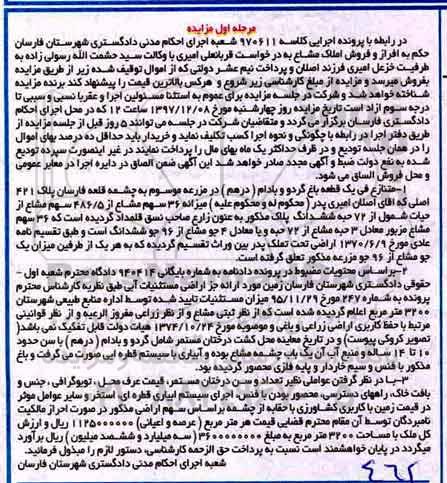 مرحله اول مزایده
در رابطه با پرونده اجرایی کلاسه ۹۷۰۶۱۱ شعبه اجرای احکام مدنی دادگستری شهرستان فارسان
حکم به افراز و فروش املاک مشاع به درخواست قربانعلی امیری با وکالت سید حشمت الله رسولی زاده به
طرفیت خزعل امیری فرزند اصلان و پرداخت نیم عشر دولتی که از اموال توقیف شده زیر از طریق مزایده
بفروش میرسد و مزایده از مبلغ کارشناسی زیر شروع و هرکس بالاترین قیمت را پیشنهاد کند برنده مزایده
شناخته خواهد شد و شرکت در جلسه مزایده برای عموم به استثنا مسئولین اجرا و عقربا نسبی و سببی تا
درجه سوم آزاد است تاریخ مزایده روز چهارشنبه مورخ ۱۳۹۷/۱۲/۰۸ ساعت ۱۲ که در محل اجرای احکام
دادگستری فارسان برگزار می گردد و متقاضیان شرکت در جلسه می توانند ۵ روز قبل از جلسه مزایده از
طریق دفتر اجرا در رابطه با چگونگی و نحوه اجرا کسب تکلیف نماید و خریدار باید حداقل ده درصد بهای اموال
را در همان جلسه تودیع و در ظرف حداکثر یک ماه بهای مال را پرداخت نمایند در غیر اینصورت سپرده تودیع
شده به نفع دولت ضبط و آگهی مجدد صادر خواهد شد این آگهی ضمن الصاق در دایره اجرا در معابر عمومی
و محل فروش الصاق می شود.
۱-متنازع فی یک قطعه باغ گردو و بادام ( درهم ) در مزرعه موسوم به چشمه قلعه فارسان پلاک ۴۲۱
اصلی که آقای اصلان امیری پدر ( محکوم له و محکوم علیه ) میزانه ۳۶ سهم مشاع از ۴۸۶/۵ سهم مشاع از
حیات شمول از ۷۲ حبه ششدانگ پلاک مذکور به عنوان زارع صاحب نسق قلمداد گردیده است که ۳۶ سهم
مشاع مزبور معادل ۳ حبه از ۷۲ حبه و یا معادل ۴ جو مشاع از ۹۶ جو ششدانگ است و طبق تقسیم نامه
عادی مورخ ۱۳۷۰/۶/۹ اراضی تحت تملک پدر بین وراث تقسیم گردیده که به هر یک از طرفین میزان یک
جو مشاع از ۹۶ جو مزرعه مذکور تعلق گرفته است.
۲-براساس محتویات مضبوط در پرونده دادنامه به شماره بایگانی ۹۴۰۴۱۴ دادگاه محترم شعبه اول -
حقوقی دادگستری شهرستان فارسان زمین مورد ارائه جز اراضی مستثنیات آبی طبق نظریه کارشناس محترم
پرونده به شماره ۲۴۷ مورخ ۹۵/۱۱/۲۹ میزان مستثنیات تایید شده توسط اداره منابع طبیعی شهرستان
۳۲۰۰ متر مربع اعلام گردیده شده است که از نظر ثبتی مشاع و از نظر زراعی مفروز الرعیه و از نظر قوانینی
مرتبط با حفظ کاربری اراضی زراعی و باغی و موصوبه مورخ ۱۳۷۴/۱۰/۲۴ هیات دولت قابل تفکیک نمی باشد(
تصویر کروکی پیوست) و در تاریخ معاینه محل کشت درختان مستمر شامل گردو و بادام ( درهم ) با سن حدود
۱۰ تا ۱۴ ساله و منبع آب آن یک باب چشمه مشاع بوده و آبیاری با سیستم قطره ایی صورت می گرفت و باغ
مذکور با فنس و سیم خاردار و پایه فلزی محصور گردیده بود.
۳-با در نظر گرفتن عواملی نظیر تعداد و سن درختان مستمر، قیمت عرف محل، توپوگرافی، جنس و
بافت خاک، راههای دسترسی، محصور بودن با فنس، اجرای سیستم آبیاری قطره ای استخر و سایر عوامل موثر
در قیمت زمین با کاربری کشاورزی با حقابه از چشمه براساس سهم اراضی مذکور در صورت احراز مالکیت
نامبردگان توسط آن مقام محترم قضایی قیمت هر متر مربع ( عرصه و اعیانی) ۱۱۲۵۰۰۰۰۰۰ ریال و ارزش
کل ملک با مساحت ۳۲۰۰ متر مربع به مبلغ ۳۶۰۰۰۰۰۰۰۰ ( سه میلیارد و ششصد میلیون ) ریال برآورد
میگردد در پایان خواهشمند است نسبت به پرداخت حق الزحمه کارشناسی، دستور لازم را مبذول فرمائید.
شعبه اجرای احکام مدنی دادگستری شهرستان فارسان
۴۶۲